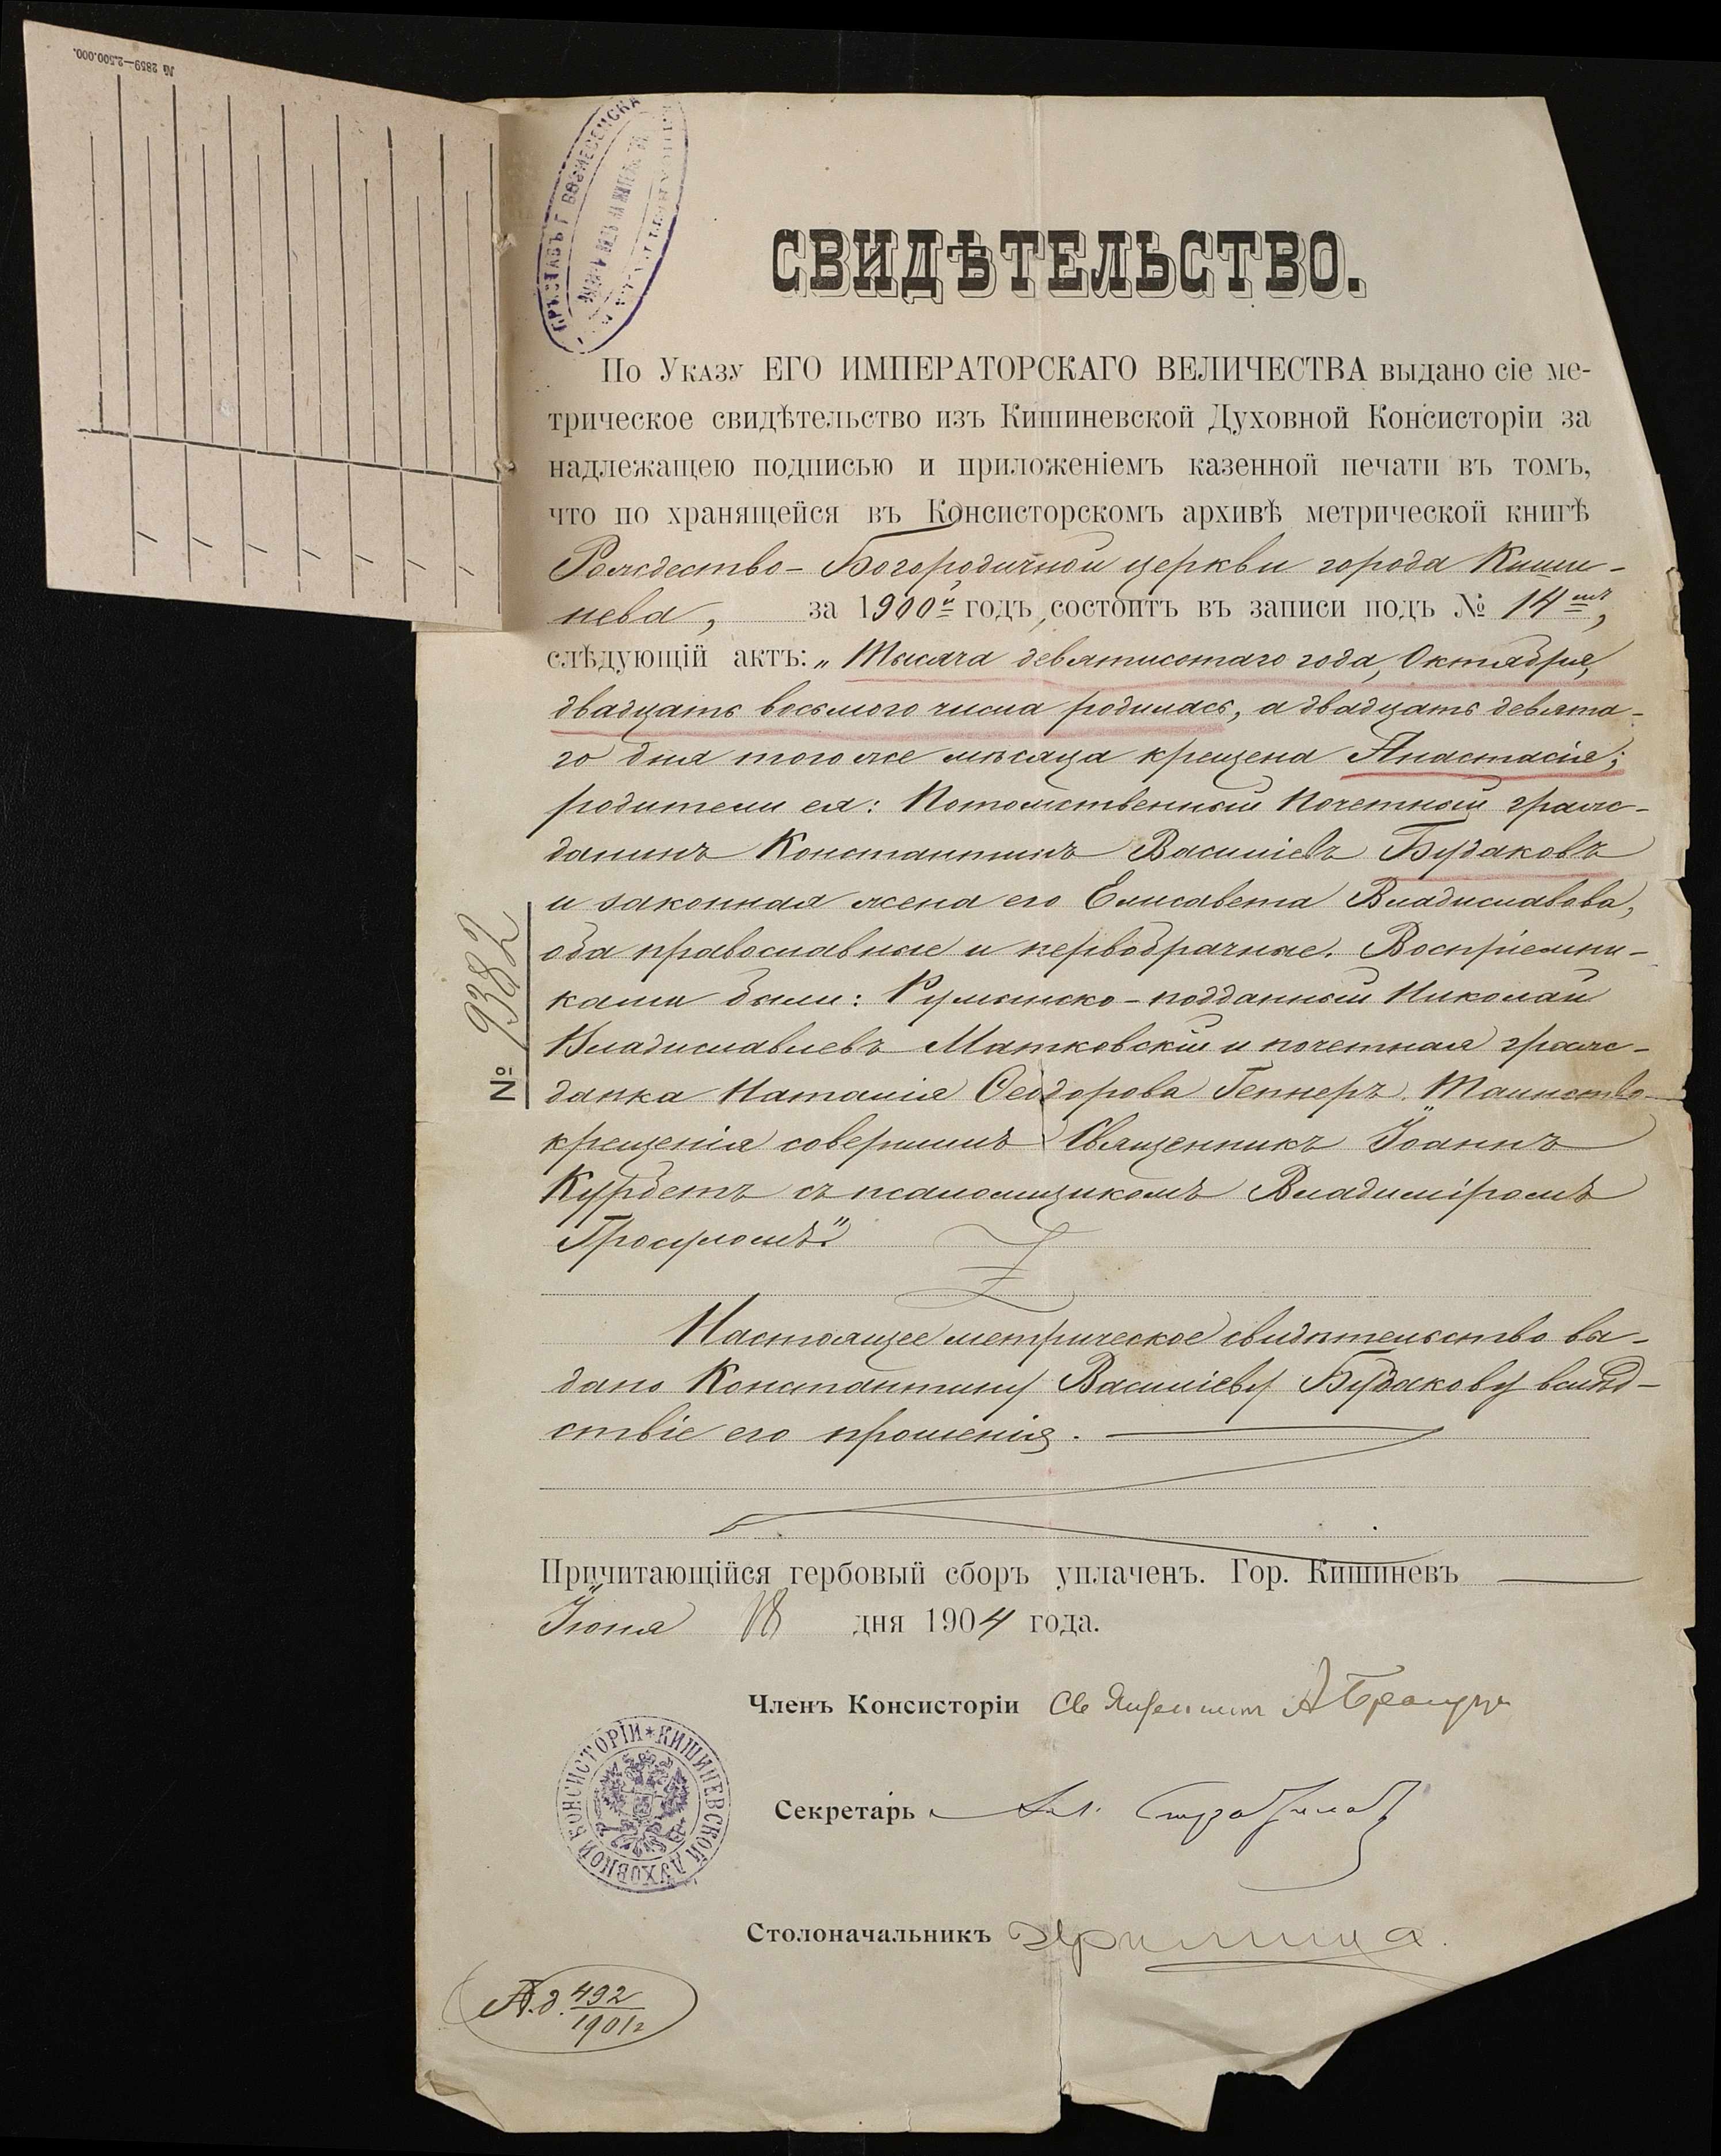 № 2859—2.500.000.
СВИДѢТЕЛЬСТВО.
По Указу ЕГО ИМПЕРАТОРСКАГО ВЕЛИЧЕСТВА выдано сіе ме-
трическое свидѣтельство изъ Кишиневской Духовной Консисторіи за
надлежащею подписью и приложеніемъ казенной печати въ томъ,
что по хранящейся въ Консисторскомъ архивѣ метрической книгѣ
Рождество-Богородичной церкви города Киши-
нева, за 1900й годъ, состоитъ въ записи подъ № 14мъ,
слѣдующій актъ: „Тысяча девятисотаго года, Октября,
двадцать восьмого числа родилась, а двадцать девята-
го дня того же мѣсяца крещена Анастасія;
родители ея: Потомственный Почетный граж-
данинъ Константинъ Василіевъ Будаковъ
и законная жена его Елисавета Владиславова,
оба православные и первобрачные. Воспріемни-
ками были: Румынско-подданный Николай
Владиславлевъ Матковскій и почетная граж-
данка Наталія Ѳеодорова Геннеръ. Таинство
крещенія совершилъ Священникъ Іоаннъ
Курдетъ съ псаломщикомъ Владиміромъ
Гросуломъ“.
Настоящее метрическое свидѣтельство вы-
дано Константину Василіеву Будакову вслѣд-
ствіе его прошенія.
Причитающійся гербовый сборъ уплаченъ. Гор. Кишиневъ
Іюня 18 дня 1904 года.
Членъ Консисторіи Священникъ А
Секретарь
Столоначальникъ
№ 9382
КИШИНЕВСКОЙ ДУХОВНОЙ КОНСИСТОРІИ
А.д. 492
1901г